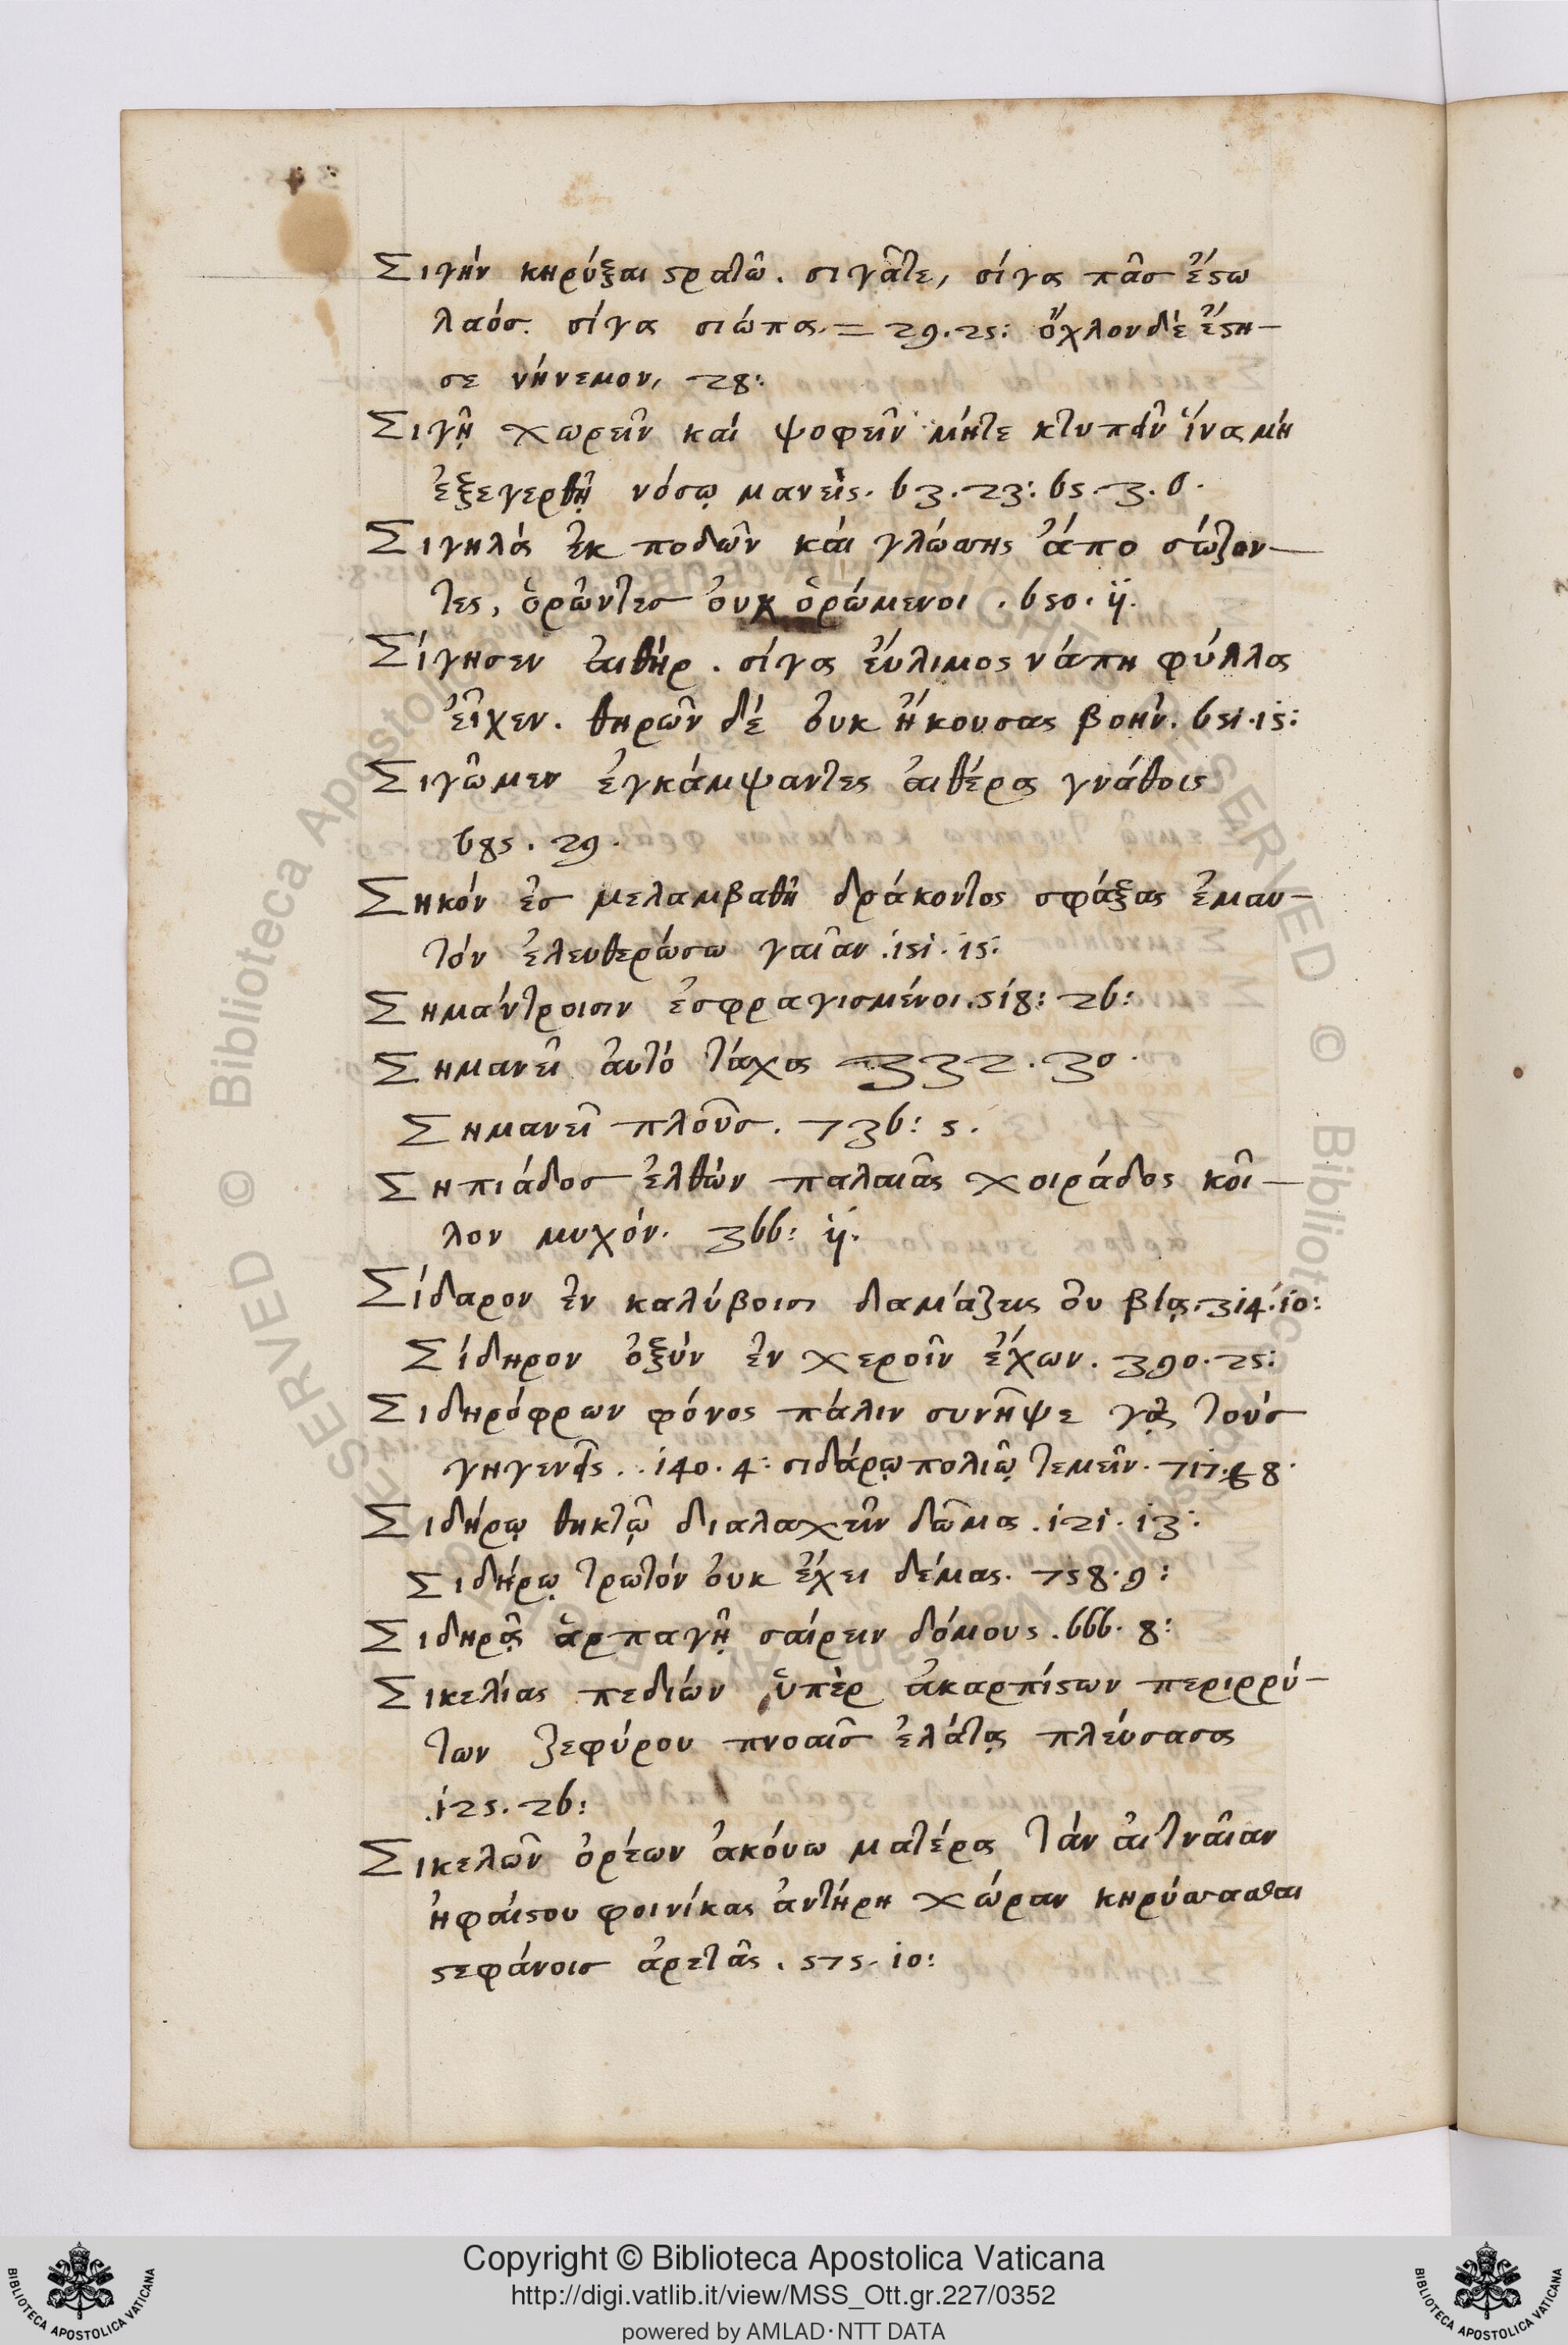 Σιγήν κηρύξαι ϛρατῶ. σιγᾶτε, σίγα πᾶσ ἔϛω
λαόσ. σίγα σιώπα. = 29.25: ὄχλον δὲ ἔϛη-
σε νήνεμον, 28:
Σιγῇ χωρεῖν καί ψοφεῖν μήτε κτυπεῖν ἵνα μή
ἐξεγερθῇ νόσῳ μανείς. 63.23: 65.3.6.
Σιγηλά ἐκ ποδῶν καί γλώσσης ἄπο σώζον-
τες, ὁρῶντεσ οὐκ ὁρώμενοι. 650. ij.
Σίγησεν αἰθήρ. σίγα εὔλιμος νάπη φύλλα
εἶχεν. θηρῶν δέ οὐκ ἤκουσας βοήν. 651.15:
Σιγῶμεν ἐγκάμψαντες αἰθέρα γνάθοις
685. 29.
Σηκόν ἐσ μελαμβαθῆ δράκοντος σφάξας ἐμαυ-
τόν ἐλευθερώσω γαῖαν. 151. 15:
Σημάντροισιν ἐσφραγισμένοι. 518: 26:
Σημανεῖ αὐτό τάχα 332. 30.
Σημανεῖ πλοῦσ. 736: 5.
Σηπιάδοσ ἐλθών παλαιᾶς χοιράδος κοῖ-
λον μυχόν. 366: ij.
Σίδαρον ἐν καλύβοισι δαμάζεις οὐ βίᾳ. 314. 10:
Σίδηρον ὀξύν ἐν χεροῖν ἔχων. 390. 25:
Σιδηρόφρων φόνος πάλιν συνῆψε γᾷ τούσ
γηγενεῖς. 140. 4: σιδάρῳ πολιῷ τεμεῖν. 717. 8.
Σιδήρῳ θηκτῷ διαλαχεῖν δῶμα. 121. 13:
Σιδήρῳ τρωτόν οὐκ ἔχει δέμας. 758. 9:
Σιδηρᾷ ἁρπαγῇ σαίρειν δόμους. 666. 8:
Σικελίας πεδιών ὑπέρ ἀκαρπίϛων περιρρύ-
των ζεφύρου πνοαῖσ ἐλάτᾳ πλεύσασα
125. 26:
Σικελῶν ὀρέων ἀκούω ματέρα τάν αἰτναῖαν
ἡφαίϛου φοινίκας ἀντήρη χώραν κηρύσσασθαι
ϛεφάνοισ ἀρετᾶς. 575. 10:
Copyright © Biblioteca Apostolica Vaticana
http://digi.vatlib.it/view/MSS_Ott.gr.227/0352
powered by AMLAD·NTT DATA